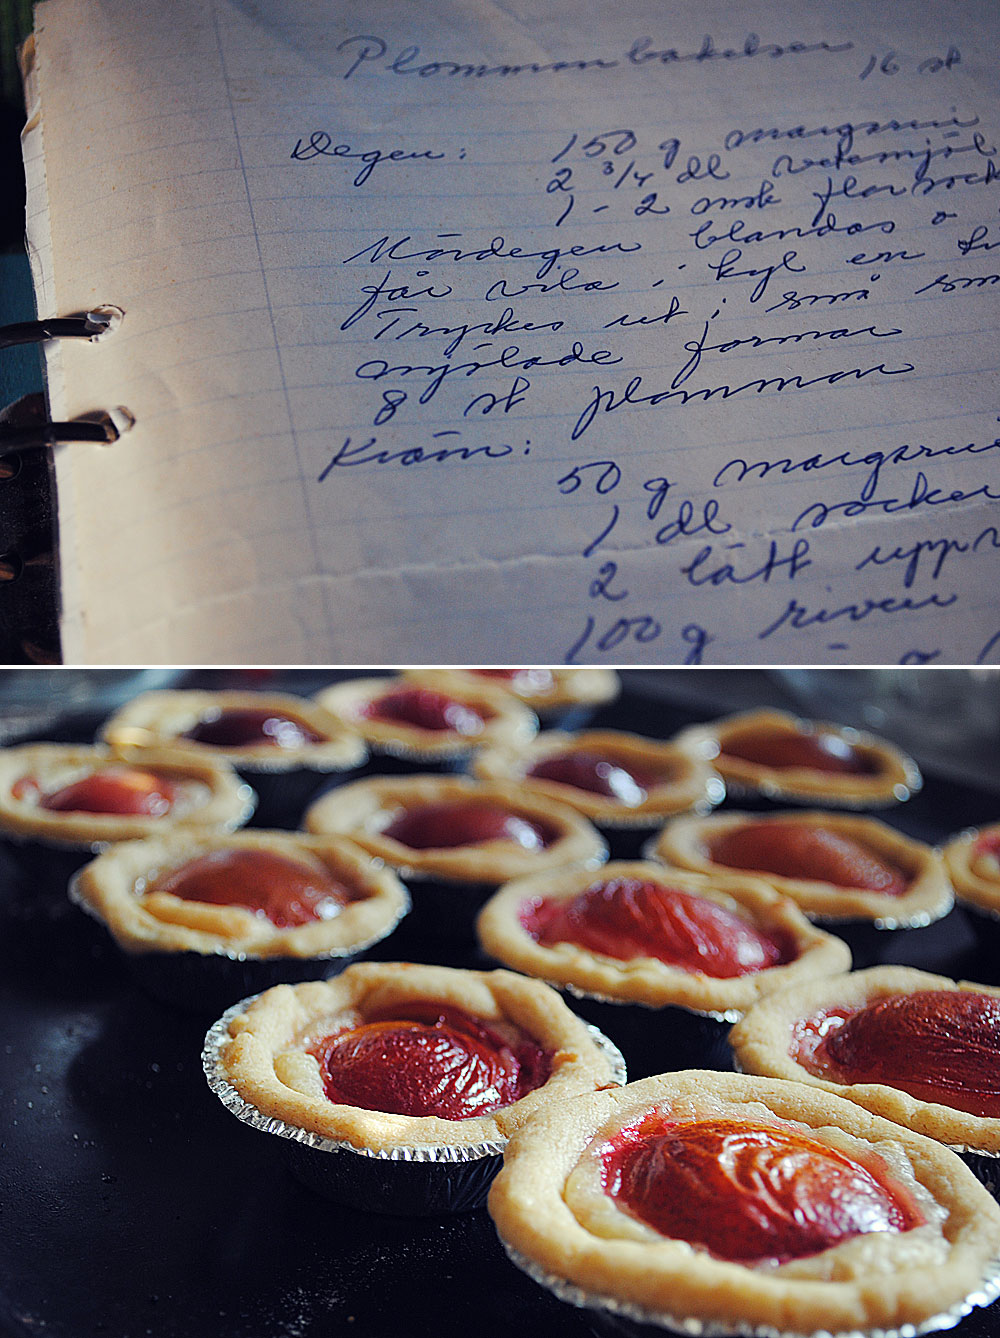 Plommonbakelser
16 st
Degen: 150 g margarin
2 3/4 dl vetemjöl
1-2 msk florsock
Mördegen blandas o
får vila i kyl en
Tryckes ut i små sm
mjölade formar
8 st plommon
Kräm:
50 g margarin
1 dl socker
2 lätt uppv
100 g riven